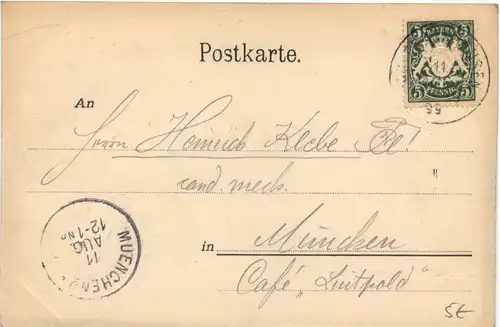 Postkarte.
BAYERN
5 5
5 PFENNIG 5
11
99
An
Herrn Heinrich Klebe
cand. med.
in München
Café „Luitpold“
MUENCHEN
11
AUG.
12-1 Nm.
5€